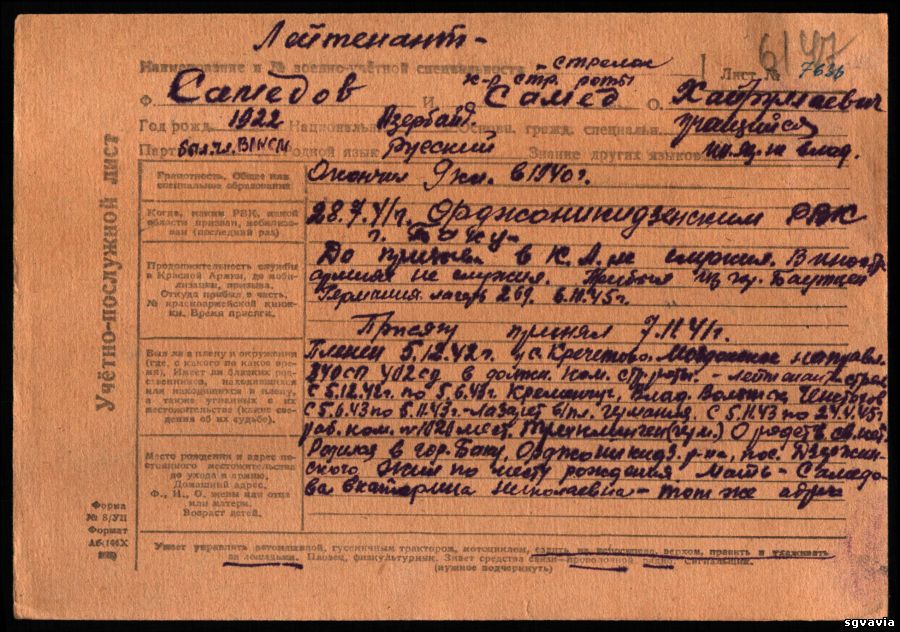 Лейтенант -
Наименование и № военно-учётной специальности - стрелок
к-р стр. роты
Лист № 7636
6/47
Ф. Самедов И. Самед О.
Год рожд. 1922 Национальн. Азербайд. Основн. гражд. специальн. учащийся
Парт. б/п чл. ВЛКСМ Родной язык русский Знание других языков ин. яз. не влад.
Учётно-послужной лист
Грамотность. Общее или специальное образование
Окончил 9 кл. в 1940 г.
Когда, каким РВК, какой области призван, мобилизован (последний раз)
28.7.41г. Орджоникидзенским РВК
г. Баку -
Продолжительность службы в Красной Армии, до мобилизации, призыва. Откуда прибыл в часть. № красноармейской книжки. Время присяги.
До призыва в К.А. не служил. В иностр.
армиях не служил. Прибыл из гор. Баутцен
Германия лагерь 269. 6.11.45г.
Присягу принял 7.11.41г.
Был ли в плену и окружении (где, с какого по какое время). Имеет ли близких родственников, находившихся или находящихся в плену, а также угнанных в их местожительства (какие сведения об их судьбе).
Пленен 5.12.42г. у с. Кречетово. Моздокское направл.
840 СП 402 сд в должн. ком. стр. роты. - лейтенант
С 5.12.42г. по 5.6.43г. Кременчуг, Влад. Волынск, Ченстохов
С 5.6.43 по 5.11.43г. - Лазарет Германия. С 5.11.43 по 24.4.45г.
раб. ком. № 1020 мест. О родств. св. нет.
Место рождения и адрес постоянного местожительства до ухода в армию. Домашний адрес. Ф., И., О. жены или отца или матери. Возраст детей.
Родился в гор. Баку, Орджоникидз. р-на, пос. Дзержин-
ского. Жил по месту рождения. Мать - Самедо-
ва Екатерина Николаевна - тот же адрес
Форма
№ 8/УП
Формат
Умеет управлять автомашиной, гусеничным трактором, мотоциклом, ездить на велосипеде, верхом, править и ухаживать
за лошадьми. Пловец, физкультурник. Знает средства связи - проволочной, радио. Сигнальщик.
(нужное подчеркнуть)
sgvavia